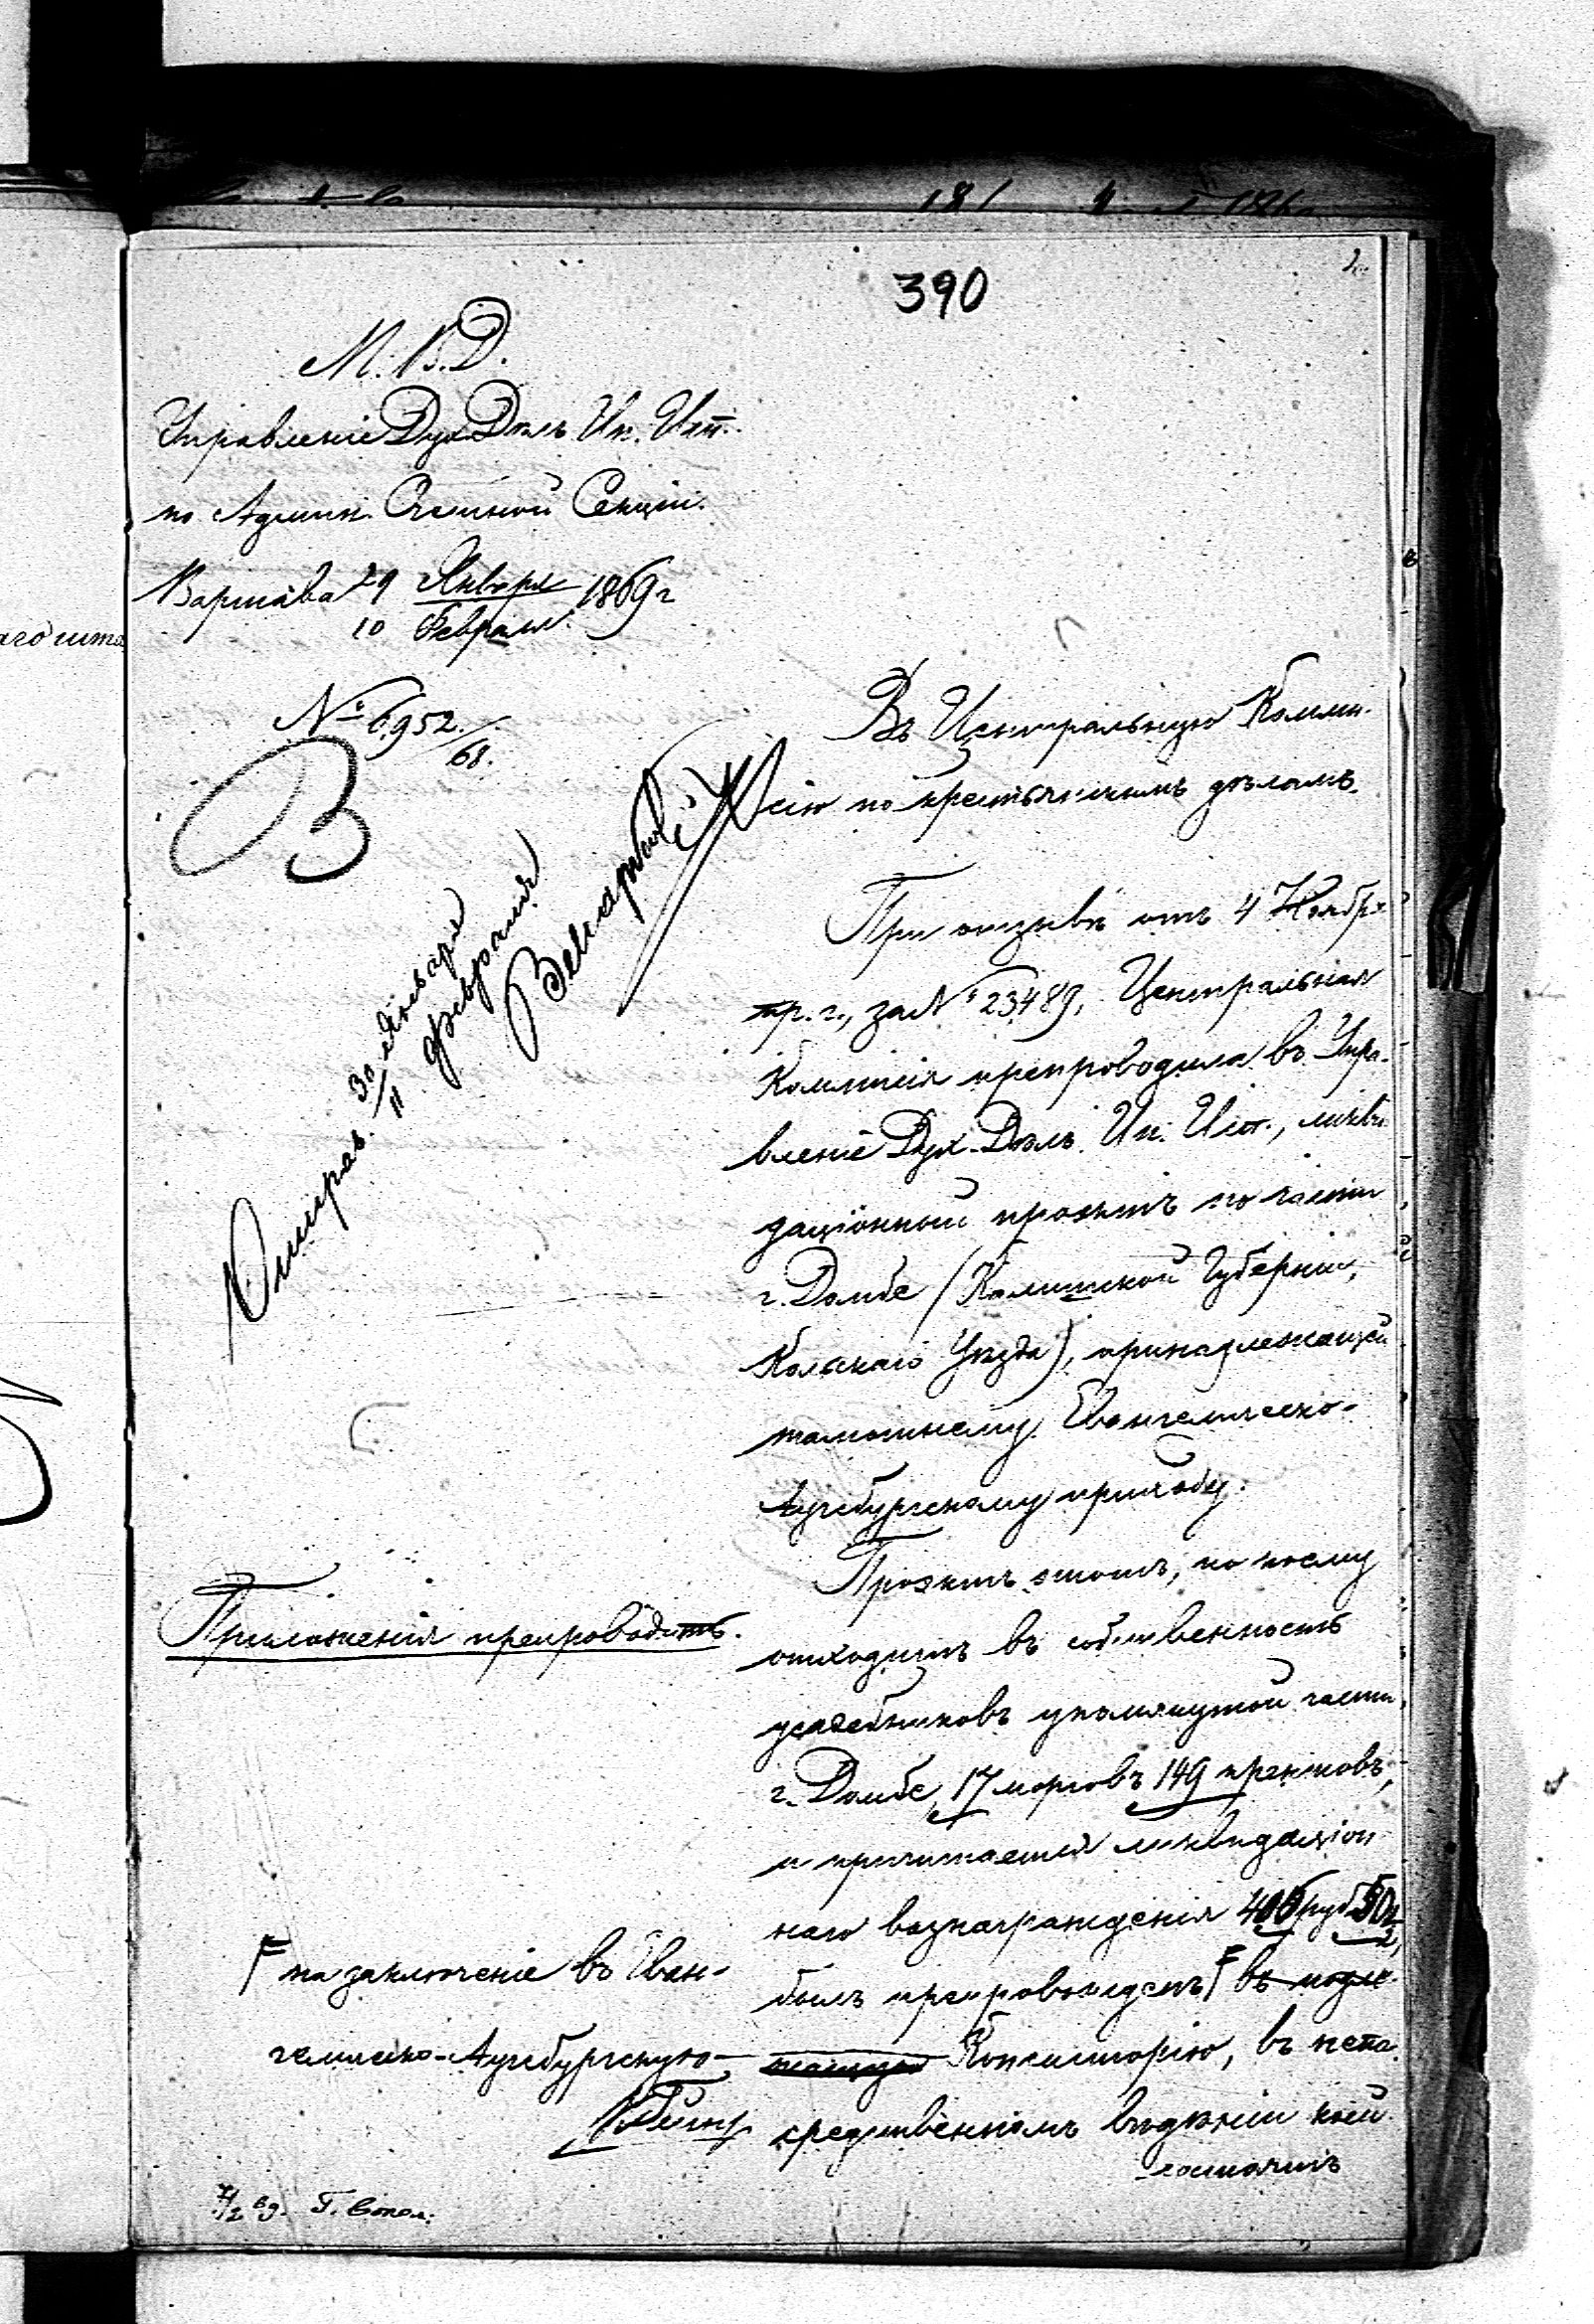 390
М. В. Д.
Управленіе Дух. Дѣлъ Ин. Исп.
по Админ. Счетной Секціи.
Варшава 29 Января 1869 г
10 Февраля
№ 6952./68.
Въ Центральную Комми-
сію по крестьянскимъ дѣламъ.
Отправ. 30 Января
11 февраля
При отзывѣ отъ 4 Ноября
пр. г., за № 23489, Центральная
Коммисія препроводила въ Упра-
вленіе Дух. Дѣлъ Ин. Исп., ликви-
даціонный проэктъ по части
г. Домбе (Калишской Губерніи,
Кольскаго Уѣзда), принадлежащей
тамошнему Евангелическо-
Аугсбургскому приходу.
Приложенія препроводить.
Проэктъ этотъ, по коему
отходитъ въ собственность
усадебниковъ упомянутой части
г. Домбе, 17 морговъ 149 прентовъ,
и причитается ликвидаціон
наго вознагражденія руб.
былъ препровожденъ F въ подле-
жащую Консисторію, въ непо-
средственномъ вѣдѣніи коей
состоитъ
F на заключеніе въ Еван-
гелическо-Аугсбургскую